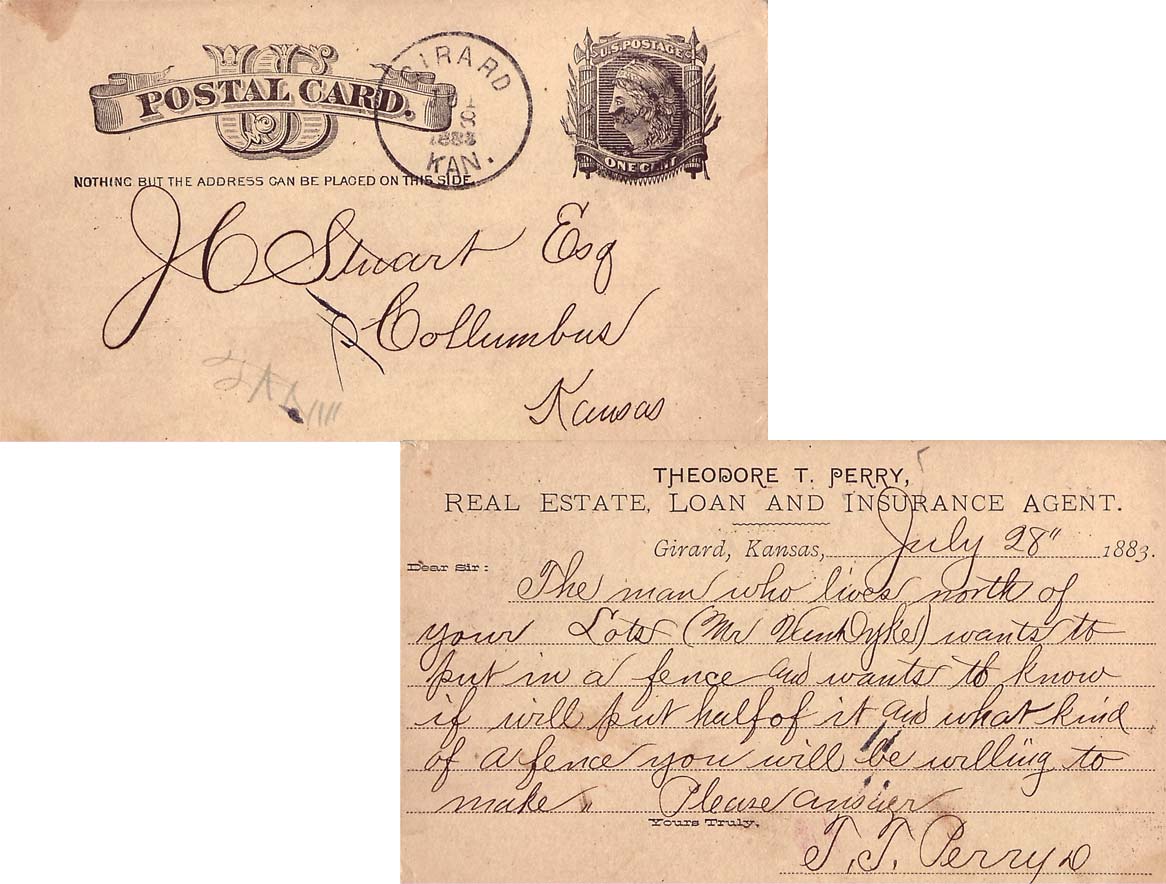 US
POSTAL CARD.
GIRARD
1883
KAN.
U.S. POSTAGE
ONE CENT
NOTHING BUT THE ADDRESS CAN BE PLACED ON THIS SIDE.
J C Stuart Esq
Collumbus
Kansas
THEODORE T. PERRY,
REAL ESTATE, LOAN AND INSURANCE AGENT.
Girard, Kansas, July 28" 1883.
Dear Sir:
The man who lives north of
your Lots (Mr VanDyke) wants to
put in a fence and wants to know
if will put half of it and what kind
of a fence you will be willing to
make. Please answer
Yours Truly,
T. T. Perry